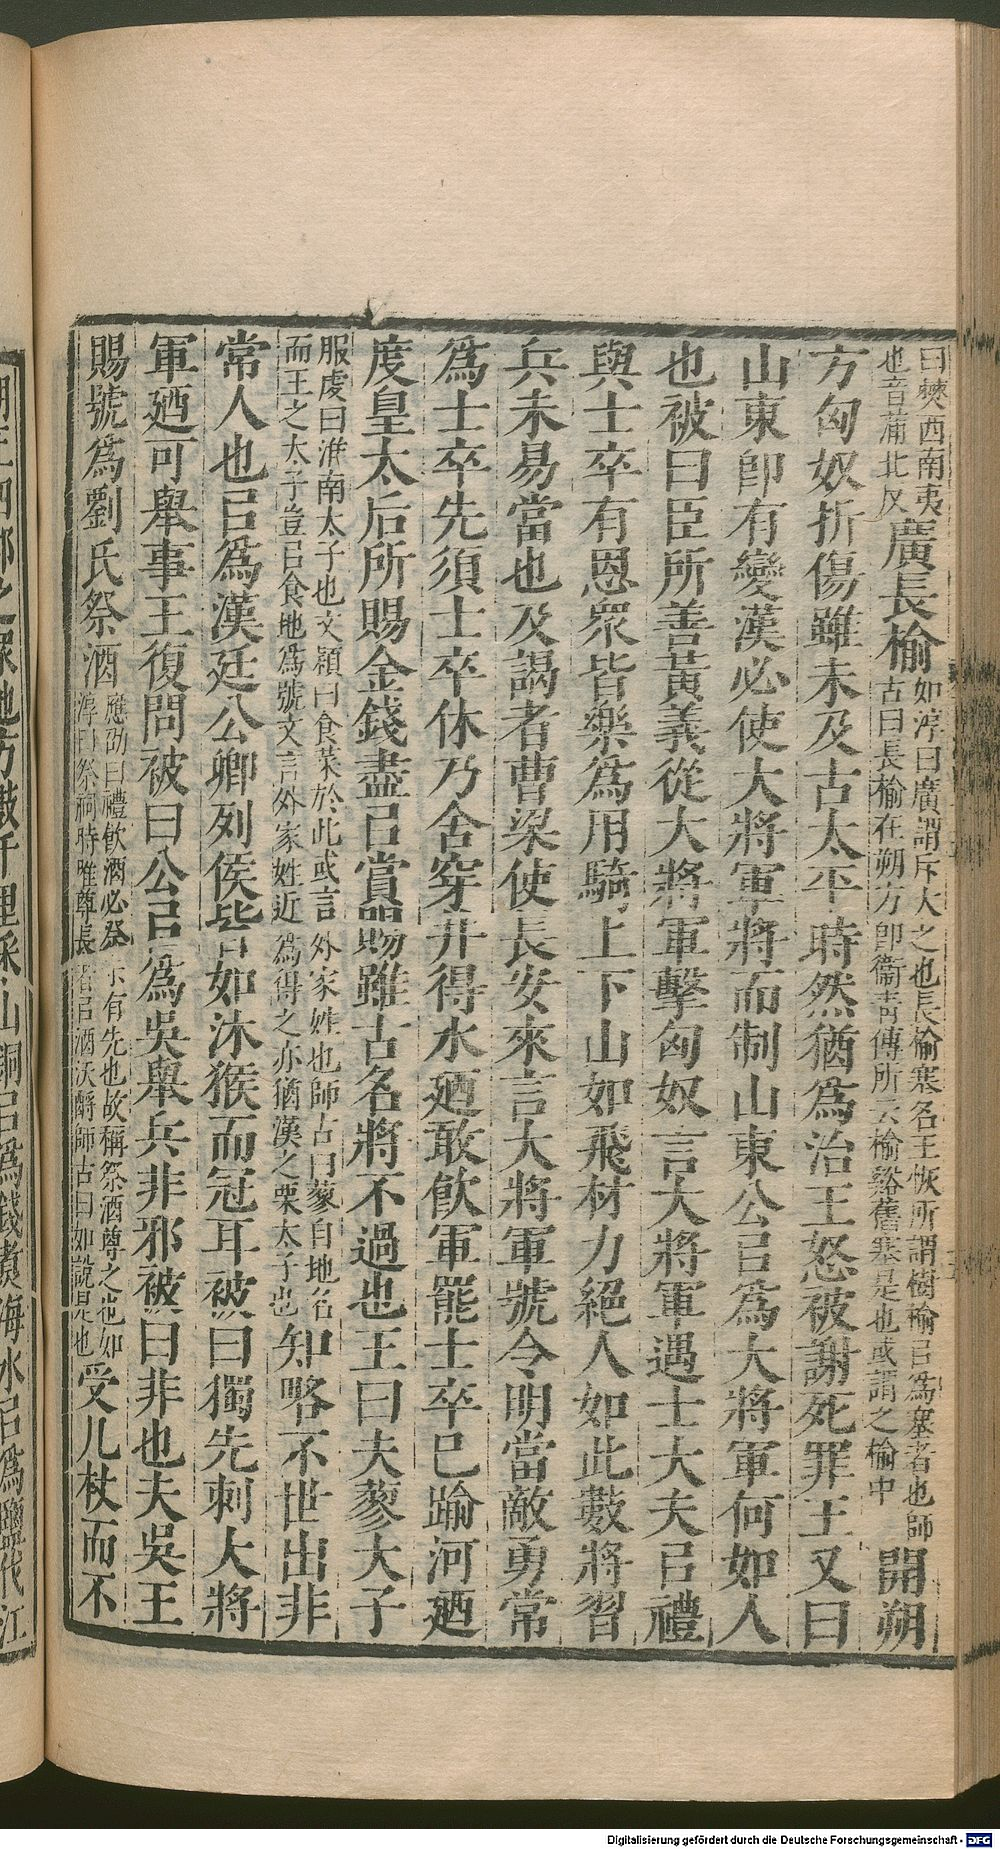 曰僰西南夷也音蒲北反廣長榆如淳曰廣謂斥大之也長榆塞名王恢所謂樹榆㠯爲塞者也師古曰長榆在朔方卽衞靑傳所云榆谿舊塞是也或謂之榆中開朔
方匈奴折傷雖未及古太平時然猶爲治王怒被謝死罪王又曰
山東卽有變漢必使大將軍將而制山東公㠯爲大將軍何如人
也被曰臣所善黃義從大將軍擊匈奴言大將軍遇士大夫㠯禮
與士卒有恩衆皆樂爲用騎上下山如飛材力絕人如此數將習
兵未易當也及謁者曹梁使長安來言大將軍號令明當敵勇常
爲士卒先須士卒休乃舍穿井得水廼敢飮軍罷士卒已踰河廼
度皇太后所賜金錢盡㠯賞賜雖古名將不過也王曰夫蓼太子
服虔曰淮南太子也文穎曰食菜於此或言外家姓也師古曰蓼自地名而王之太子豈㠯食地爲號文言外家姓近爲得之亦猶漢之栗太子也知略不世出非
常人也㠯爲漢廷公卿列侯皆如沐猴而冠耳被曰獨先刺大將
軍廼可舉事王復問被曰公㠯爲吳舉兵非邪被曰非也夫吳王
賜號爲劉氏祭酒應劭曰禮飮酒必祭示有先也故稱祭酒尊之也如淳曰祭祠時唯尊長者㠯酒沃酹師古曰如說是也受几杖而不
Digitalisierung gefördert durch die Deutsche Forschungsgemeinschaft - DFG